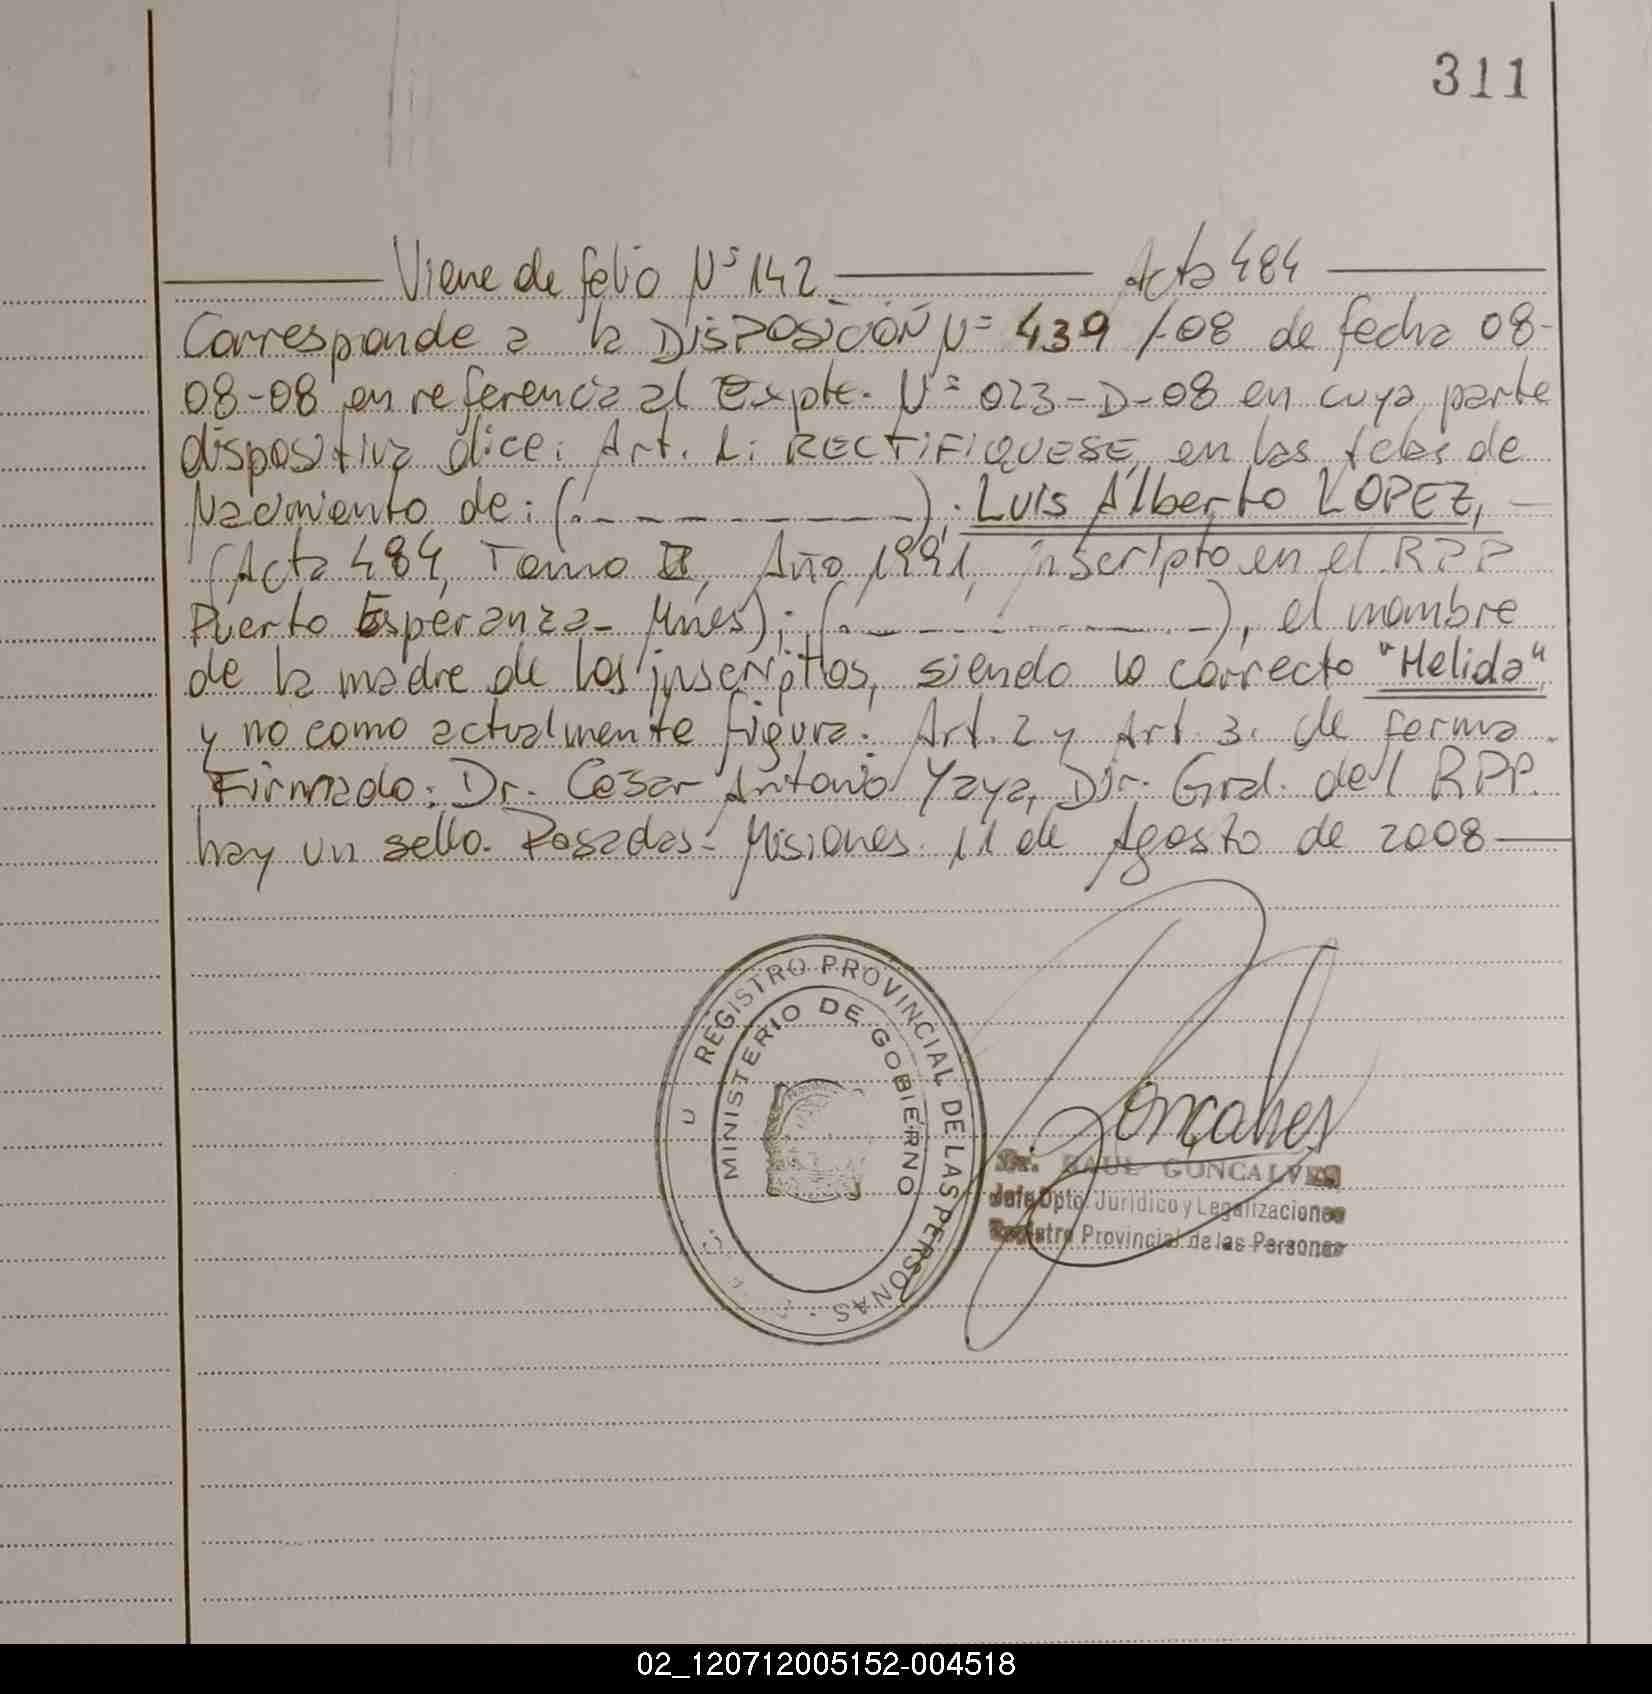 311
Viene de folio Nº 142 Acta 484
Corresponde a la DISPOSICIÓN Nº 439/-08 de fecha 08-
08-08 en referencia al Expte. Nº 023-D-08 en cuya parte
dispositiva dice: Art. 1: RECTIFIQUESE, en las actas de
Nacimiento de: (. - - - - - - - - -); Luis Alberto LOPEZ,
(Acta 484, Tomo II, Año 1991, inscripto en el RPP
Puerto Esperanza- Mnes); (. - - - - - - - - -), el nombre
de la madre de los inscriptos, siendo lo correcto "Helida"
y no como actualmente figura. Art. 2 y Art. 3. de forma.
Firmado: Dr. Cesar Antonio Yaya, Dir. Gral. del RPP.
hay un sello. Posadas- Misiones. 11 de Agosto de 2008
REGISTRO PROVINCIAL DE LAS PERSONAS
MINISTERIO DE GOBIERNO
Goncalves
Dr. RAUL GONCALVES
Jefe Dpto. Jurídico y Legalizaciones
Registro Provincial de las Personas
02_120712005152-004518